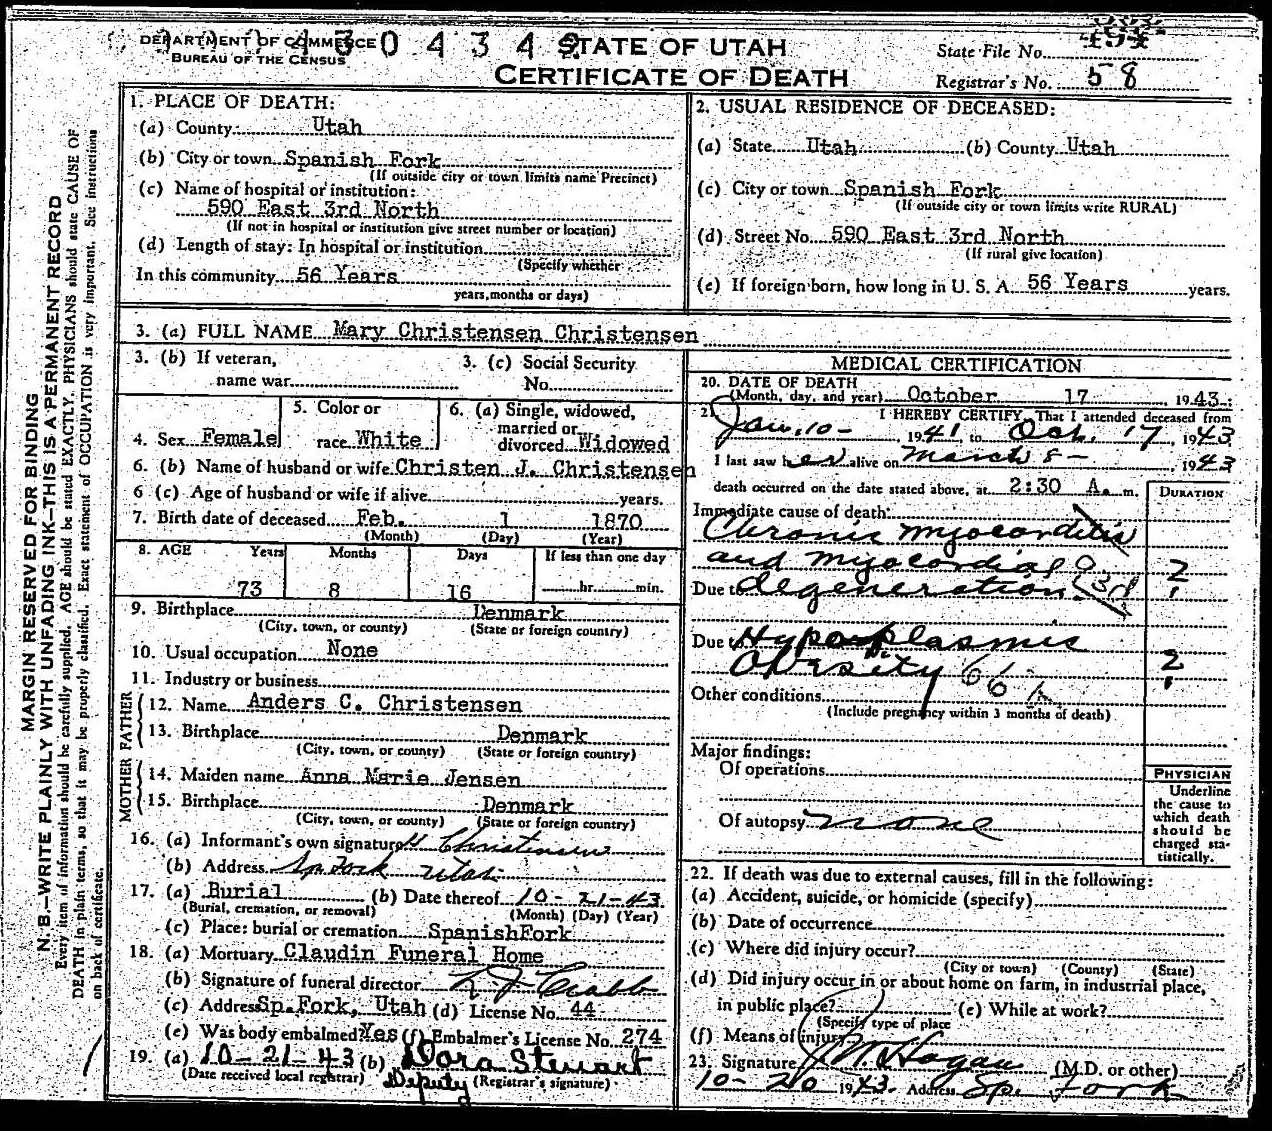 DEPARTMENT OF COMMERCE
BUREAU OF THE CENSUS
4304342
STATE OF UTAH
CERTIFICATE OF DEATH
State File No.
Registrar's No. 58
MARGIN RESERVED FOR BINDING
N. B.—WRITE PLAINLY WITH UNFADING INK—THIS IS A PERMANENT RECORD
Every item of information should be carefully supplied. AGE should be stated EXACTLY. PHYSICIANS should state CAUSE OF
DEATH in plain terms, so that it may be properly classified. Exact statement of OCCUPATION is very important. See instructions
on back of certificate.
1. PLACE OF DEATH:
(a) County Utah
(b) City or town Spanish Fork
(If outside city or town limits name Precinct)
(c) Name of hospital or institution:
590 East 3rd North
(If not in hospital or institution give street number or location)
(d) Length of stay: In hospital or institution
(Specify whether
In this community 56 Years
years, months or days)
2. USUAL RESIDENCE OF DECEASED:
(a) State Utah (b) County Utah
(c) City or town Spanish Fork
(If outside city or town limits write RURAL)
(d) Street No. 590 East 3rd North
(If rural give location)
(e) If foreign born, how long in U. S. A. 56 Years years.
3. (a) FULL NAME Mary Christensen Christensen
3. (b) If veteran,
name war
3. (c) Social Security
No.
4. Sex Female
5. Color or
race White
6. (a) Single, widowed,
married or
divorced Widowed
6. (b) Name of husband or wife Christen J. Christensen
6 (c) Age of husband or wife if alive years.
7. Birth date of deceased Feb. 1 1870
(Month) (Day) (Year)
8. AGE Years Months Days If less than one day
73 8 16 hr. min.
9. Birthplace Denmark
(City, town, or county) (State or foreign country)
10. Usual occupation None
11. Industry or business
FATHER
12. Name Anders C. Christensen
13. Birthplace Denmark
(City, town, or county) (State or foreign country)
MOTHER
14. Maiden name Anna Marie Jensen
15. Birthplace Denmark
(City, town, or county) (State or foreign country)
16. (a) Informant's own signature Christensen
(b) Address Sp. Fork Utah
17. (a) Burial (b) Date thereof 10-21-43
(Burial, cremation, or removal) (Month) (Day) (Year)
(c) Place: burial or cremation SpanishFork
18. (a) Mortuary Claudin Funeral Home
(b) Signature of funeral director
(c) Address Sp. Fork, Utah (d) License No. 44
(e) Was body embalmed Yes (f) Embalmer's License No. 274
19. (a) 10-21-43 (b) Dora Stewart
(Date received local registrar) Deputy (Registrar's signature)
MEDICAL CERTIFICATION
20. DATE OF DEATH
(Month, day, and year) October 17, 1943
21. I HEREBY CERTIFY, That I attended deceased from
Jan. 10-, 1941, to Oct. 17, 1943
I last saw her alive on March 8-, 1943
death occurred on the date stated above, at 2:30 A. m.
DURATION
Immediate cause of death:
Chronic myocarditis
and myocardial
Due to degeneration 93d
2
Due to
Obesity 66
2
Other conditions
(Include pregnancy within 3 months of death)
Major findings:
Of operations
Of autopsy none
PHYSICIAN
Underline
the cause to
which death
should be
charged sta-
tistically.
22. If death was due to external causes, fill in the following:
(a) Accident, suicide, or homicide (specify)
(b) Date of occurrence
(c) Where did injury occur?
(City or town) (County) (State)
(d) Did injury occur in or about home on farm, in industrial place,
in public place? (e) While at work?
(Specify type of place
(f) Means of injury
23. Signature J. W. Hagan (M.D. or other)
10-20 1943. Address Sp. Fork